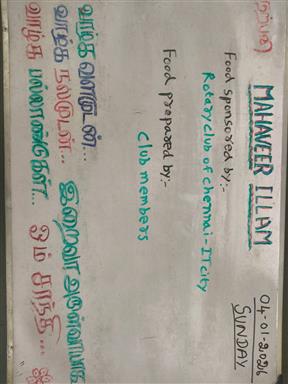 MAHAVEER ILLAM
04-01-2026
SUNDAY
Food sponsored by:-
Rotary club of Chennai-ITcity
Food prepared by:-
Club members
வாழ்க வளமுடன்...
வாழ்க நலமுடன்... இறைவா அருள்வாயாக
வாழ்க பல்லாண்டுகள்... ஓம் சாந்தி...